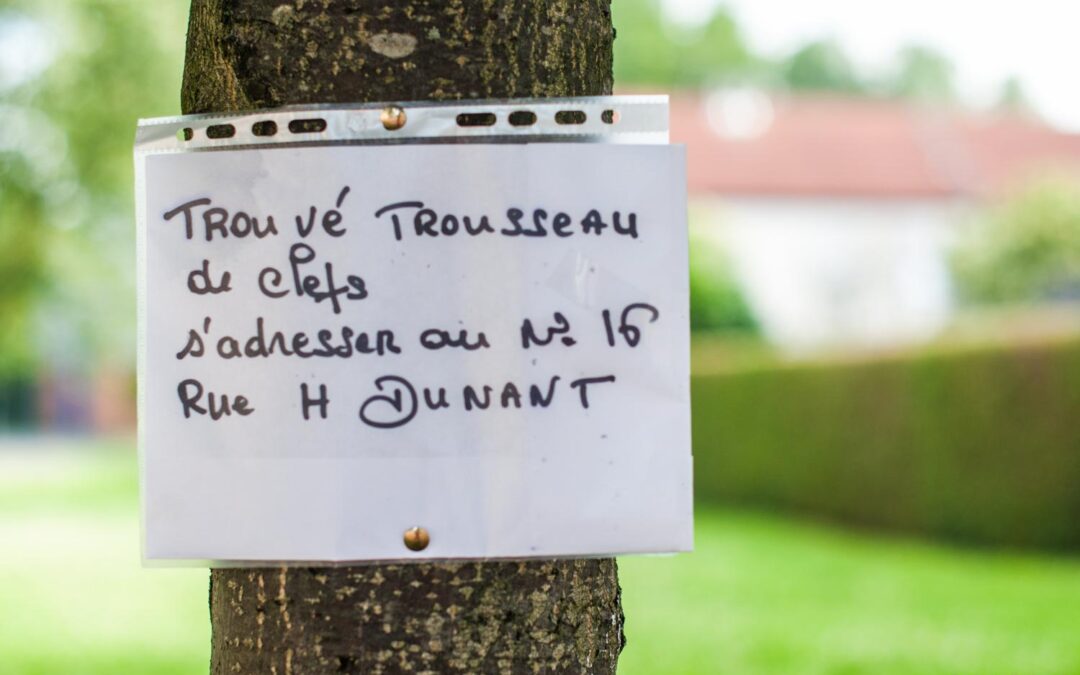 Trouvé Trousseau
de clefs
s'adresser au N° 16
Rue H DUNANT